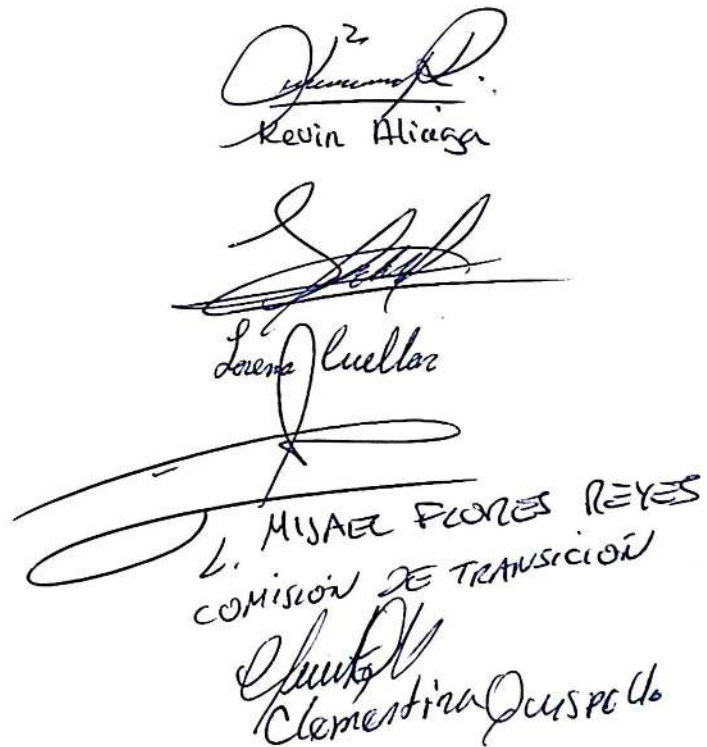 Kevin Aliaga
Lorena Cuellar
L. MISAEL FLORES REYES
COMISIÓN DE TRANSICIÓN
Clementina